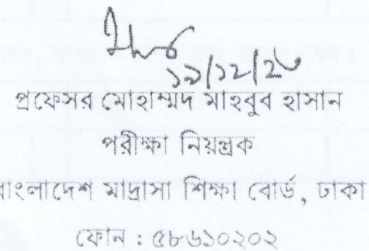 ১৯/১২/২
প্রফেসর মোহাম্মদ মাহবুব হাসান
পরীক্ষা নিয়ন্ত্রক
বাংলাদেশ মাদ্রাসা শিক্ষা বোর্ড, ঢাকা
ফোন : ৫৮৬১০২০২